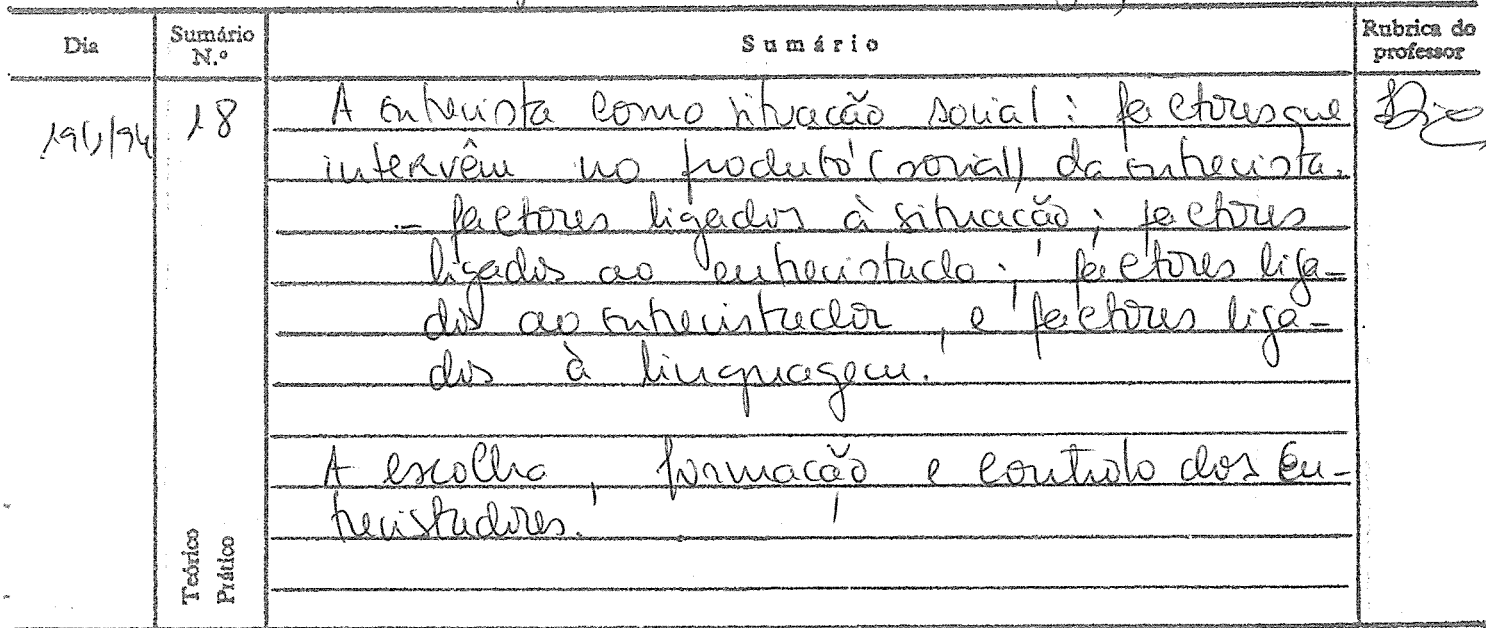 Dia
Sumário N.º
Sumário
Rubrica do professor
18
A entrevista como situação social: factores que
intervêm no produto (social) da entrevista.
- factores ligados à situação; factores
ligados ao entrevistado; factores liga-
dos ao entrevistador, e factores liga-
dos à linguagem.
A escolha, formação e controlo dos en-
trevistadores.
Teórico
Prático